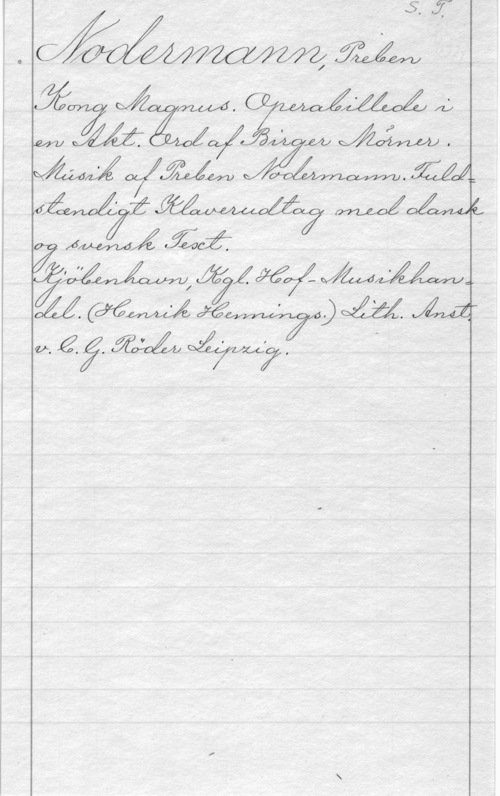 S. T.
Nodermann, Preben
Kong Magnus. Operabillede i
en Akt. Ord af Birger Mörner.
Musik af Preben Nodermann. Fuld=
stændigt Klaverudtag med dansk
og svensk Text.
Kjöbenhavn, Kgl. Hof-Musikhan=
del. (Henrik Hennings.) Lith. Anst.
v. C. G. Röder Leipzig.